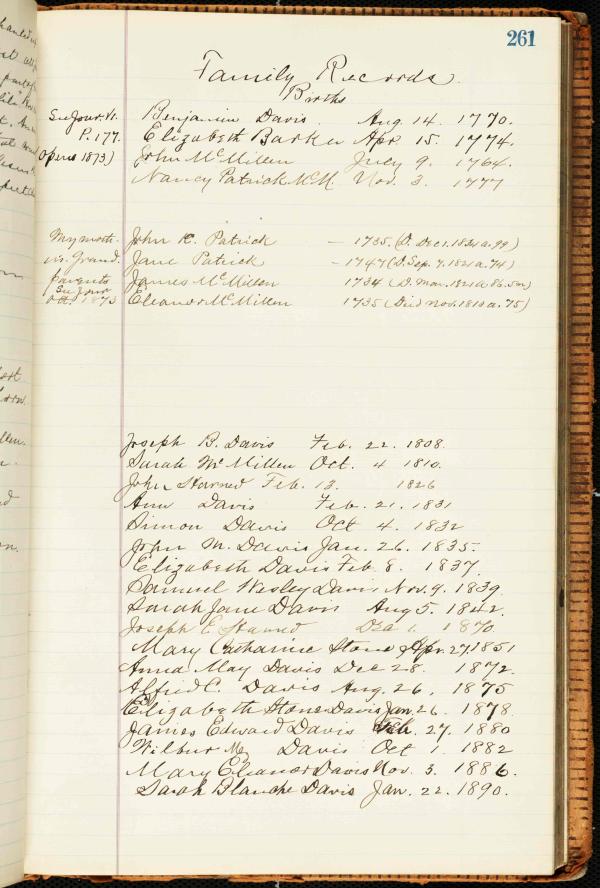 261
Family Records.
Births
See Jour. VI. Benjamin Davis. Aug. 14. 1770.
P. 177. Elizabeth Barker Apr. 15. 1774.
1873) John McMillen July 9. 1764.
Nancy Patrick McM. Nov. 3. 1777
My moth- John K. Patrick — 1735. (D. Dec 1. 1834 a. 99)
er's Grand. Jane Patrick — 1747 (D. Sep. 7. 1821 a. 74)
parents James McMillen 1734 (D. Mar. 1821 a 86. 5m)
See Jour
Oct. 1873 Eleanor McMillen 1735 (Died Nov. 1810 a. 75)
Joseph B. Davis Feb. 22. 1808.
Sarah McMillen Oct. 4 1810.
John Starned Feb. 13. 1826
Ann Davis Feb. 21. 1831
Simon Davis Oct 4. 1832
John M. Davis Jan. 26. 1835.
Elizabeth Davis Feb. 8. 1837.
Samuel Wesley Davis Nov. 9. 1839.
Sarah Jane Davis Aug 5. 1842.
Joseph E. Starned Dec 1. 1870
Mary Catharine Stone Apr. 27. 1851
Anna May Davis Dec 28. 1872.
Alfred C. Davis Aug. 26. 1875
Elizabeth Stone Davis Jan. 26. 1878
James Edward Davis Feb. 27. 1880
Wilbur Mc Davis Oct 1. 1882
Mary Eleanor Davis Nov. 3. 1886.
Sarah Blanche Davis Jan. 22. 1890.